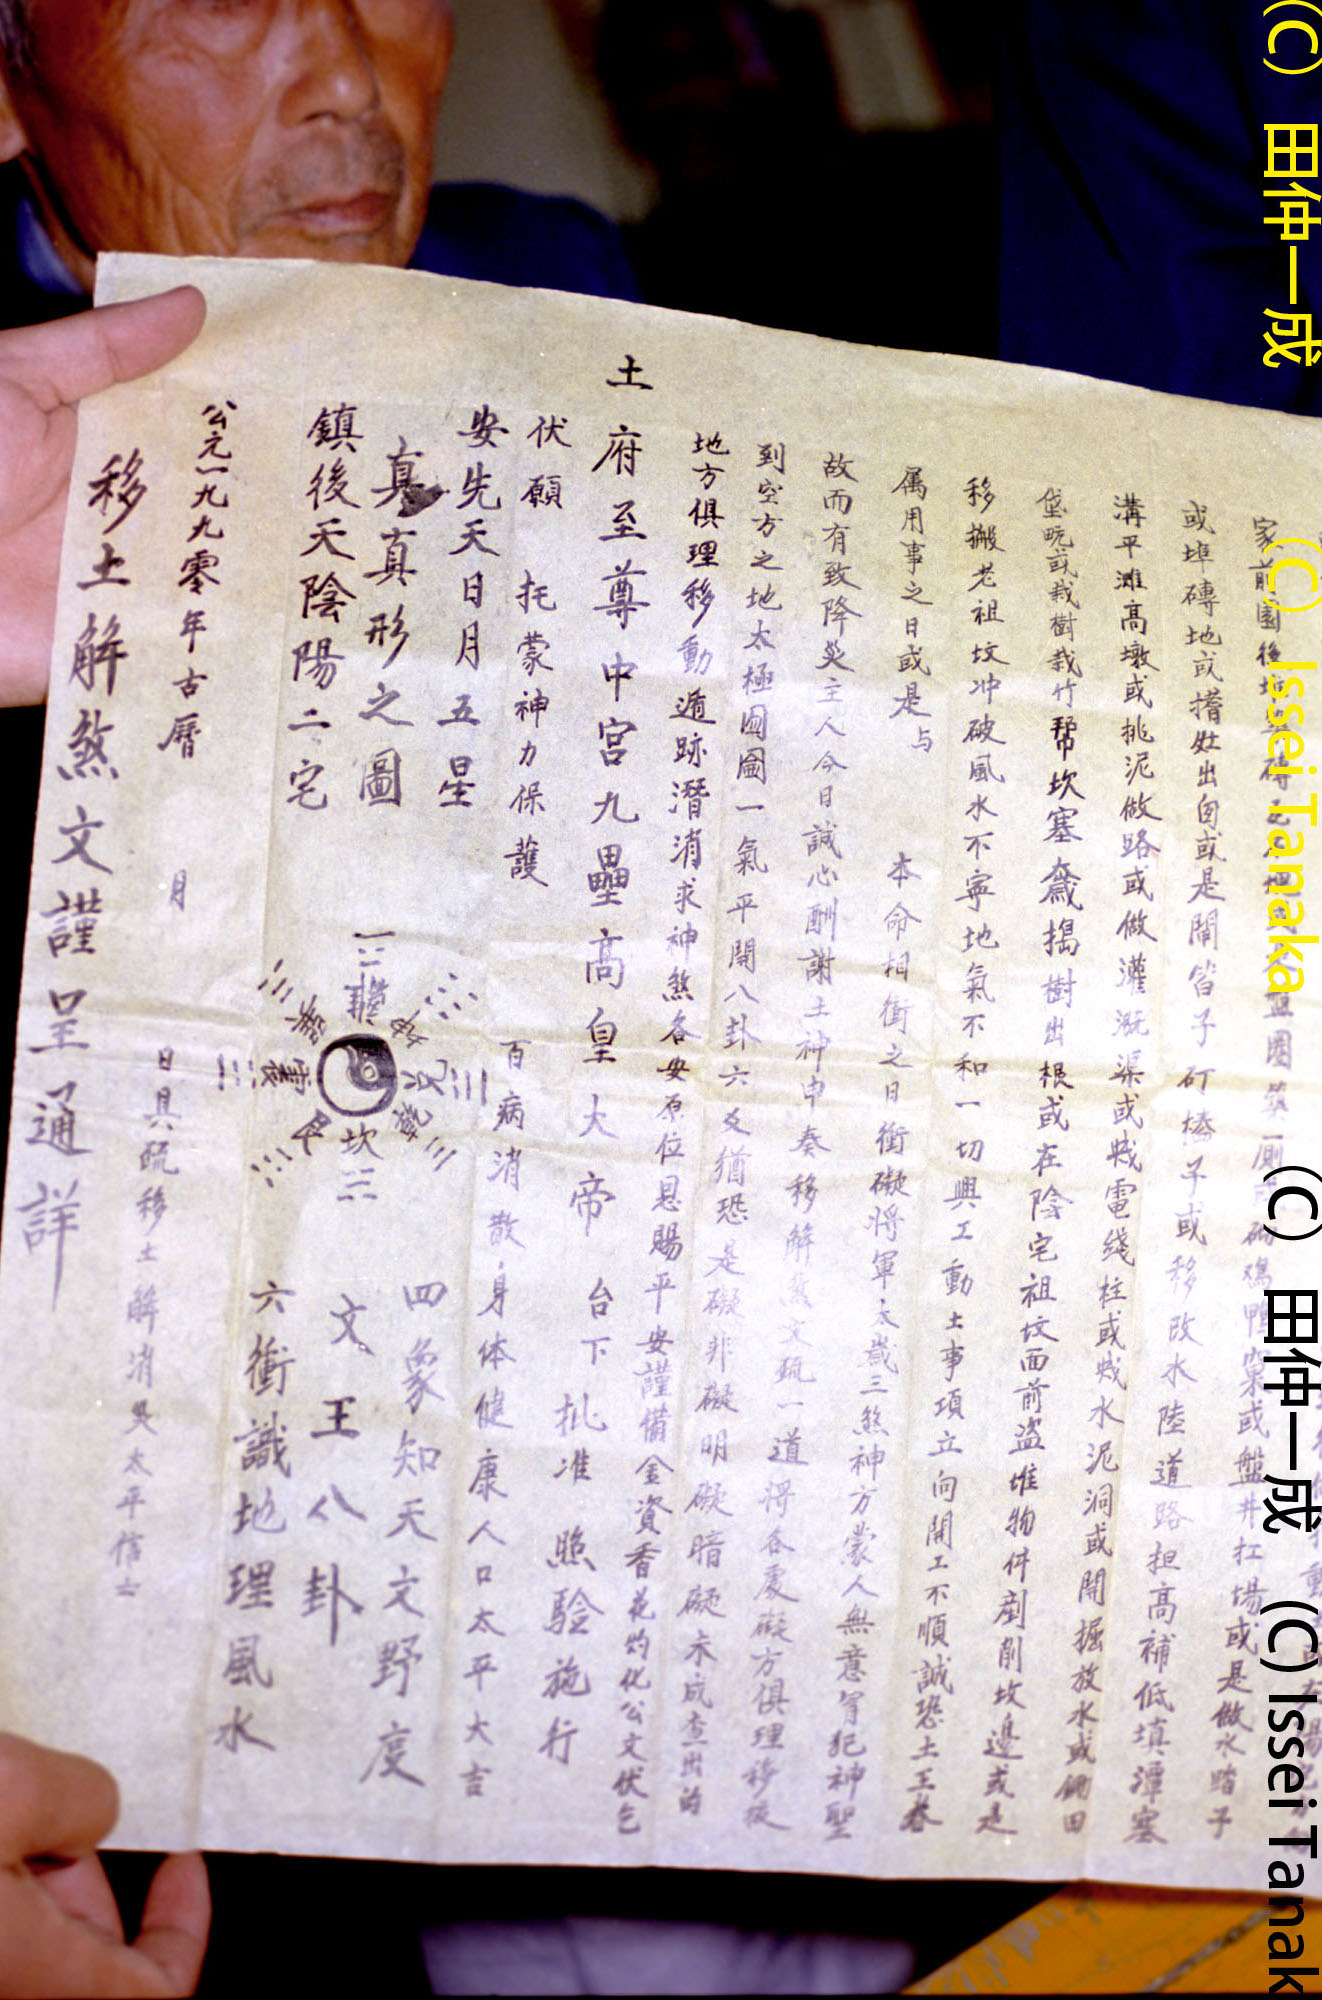 家前園後
或埠磚地或撘灶出囪或是開眢子矴橋子或移改水陸道路担高補低填潭塞
溝平滩高墩或挑泥做路或做灌溉渠或
電綫柱或
水泥洞或開掘放水或
田
或栽樹栽竹帮坎塞
搗樹出根或在陰宅祖坟面前盗堆物件
削坎邊或是
移搬老祖坟冲破風水不寜地氣不和一切興工動土事項立向開工不順誠恐土王
属用事之日或是与 本命相衝之日衝礙将軍太歲三煞神方蒙人無意冒犯神聖
故而有致降災主人今日誠心酬謝土神申奏移解煞文疏一道将各處礙方俱理移
到空方之地太極圆圖一氣平開八卦六爻猶恐是礙非礙明礙暗礙未成查出的
地方俱理移動遁跡潜消求神煞各安原位恩賜平安謹備金資香花灼化公文伏乞
土府至尊中宫九壘高皇大帝 台下批准照驗施行
伏願 托蒙神力保護 百病消散身体健康人口太平大吉
安先天日月五星 四象知天文野度
真真形之圖 文王八卦
鎮後天陰陽二宅 六衝識地理風水
離
坤
兌
乾
坎
艮
震
巽
公元一九九零年古曆 月 日具疏移土解消災太平信士
移土解煞文謹呈通詳
(C) 田仲一成 (C) Issei Tanaka (C) 田仲一成 (C) Issei Tanak